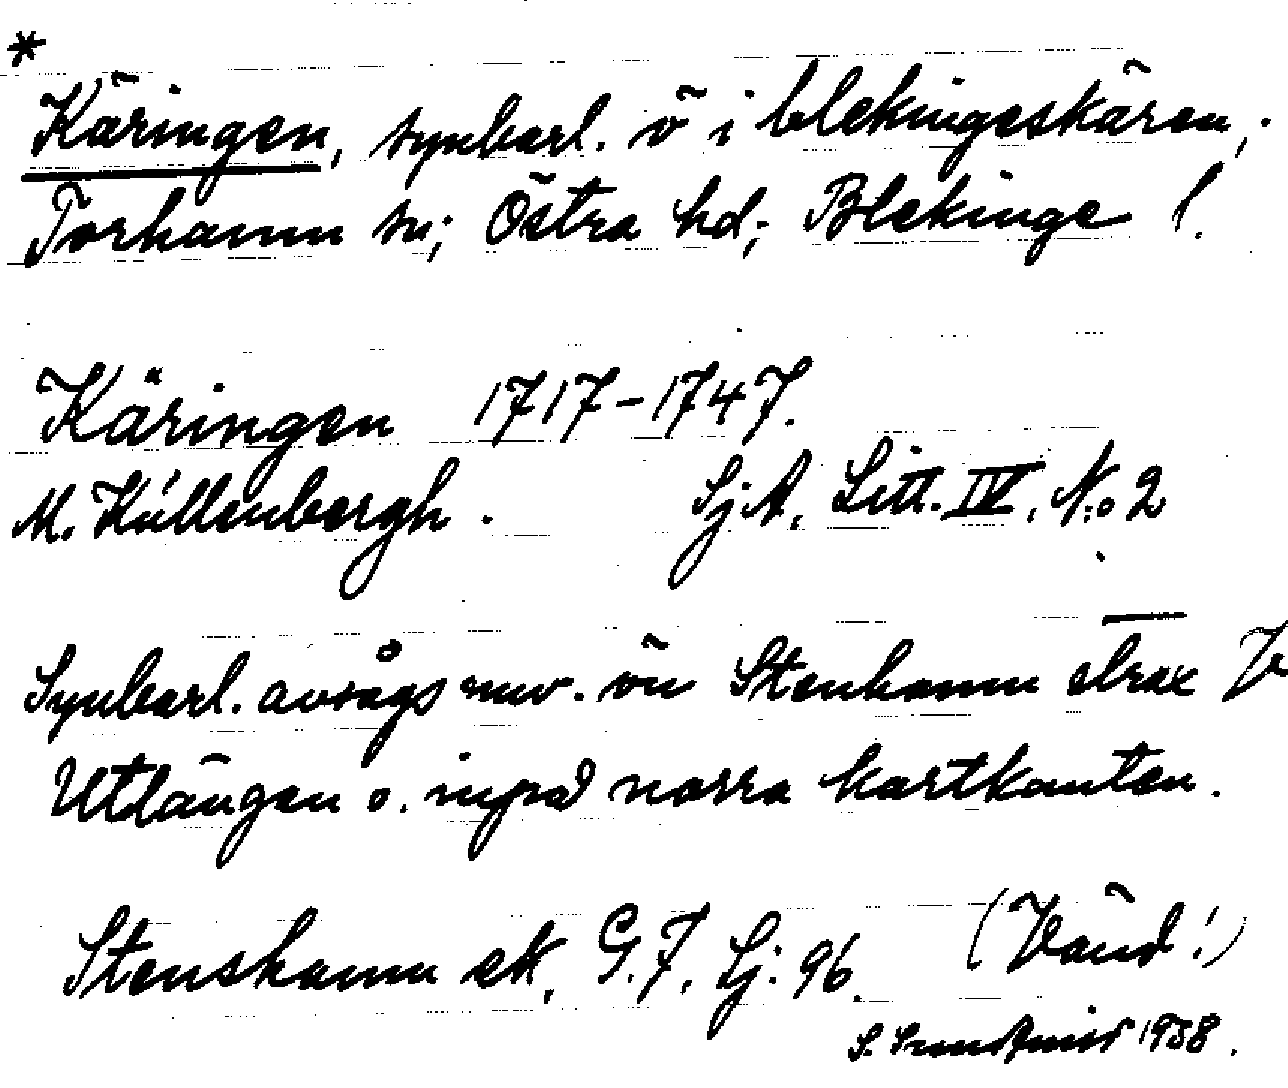 *
Käringen, synbarl. ö i blekingeskären,
Torhamn sn; Östra hd; Blekinge l.
Käringen 1717-1747.
M. Küllenbergh. Sj A, Litt. IV, N:o 2
Synbarl. avsågs nuv. ön Stenhamn strax
Utlängen o. inpå norra kartkanten.
Stenshamn ek, G. 7, Sj: 96 (Vänd!)
S. 1958.